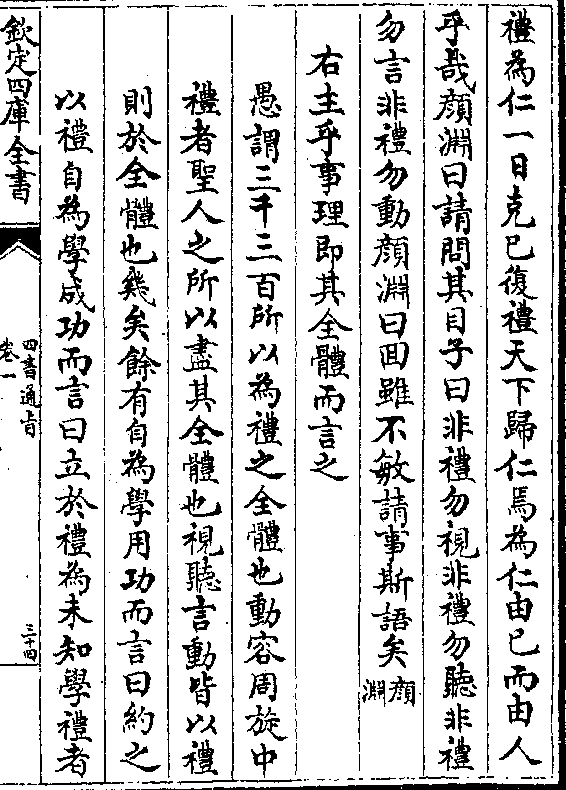 禮為仁一日克己復禮天下歸仁焉為仁由己而由人
乎哉顔淵曰請問其目子曰非禮勿視非禮勿聽非禮
勿言非禮勿動顔淵曰回雖不敏請事斯語矣顔淵
右主乎事理即其全體而言之
愚謂三千三百所以為禮之全體也動容周旋中
禮者聖人之所以盡其全體也視聽言動皆以禮
則於全體也幾矣餘有自為學用功而言曰約之
以禮自為學成功而言曰立於禮為未知學禮者
欽定四庫全書
四書通旨
卷一
三十四